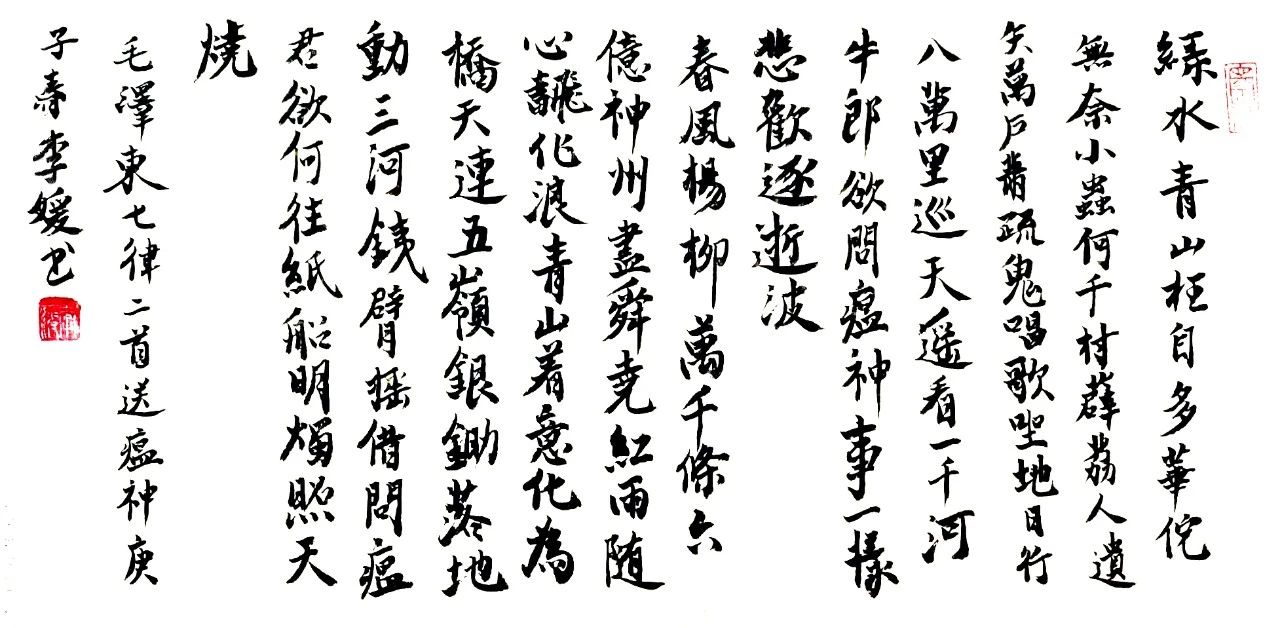 綠水青山枉自多華佗
無奈小蟲何千村薜荔人遺
矢萬戶蕭疏鬼唱歌坐地日行
八萬里巡天遙看一千河
牛郎欲問瘟神事一樣
悲歡逐逝波
春風楊柳萬千條六
億神州盡舜堯紅雨随
心飜作浪青山着意化為
橋天連五嶺銀鋤落地
動三河銕臂摇借問瘟
君欲何往紙船明燭照天
燒
毛澤東七律二首送瘟神庚
子春李媛书